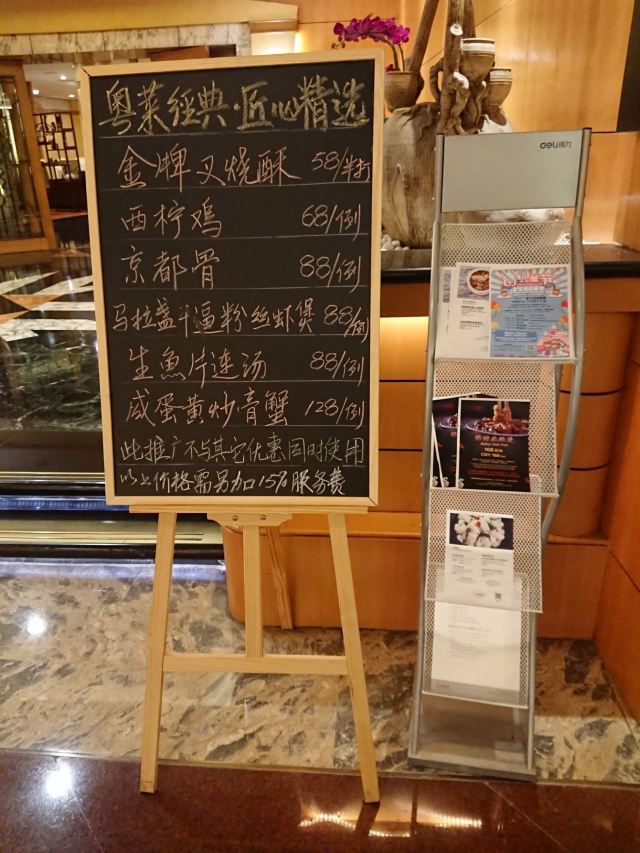 粤菜經典·匠心精选
金牌叉烧酥 58/半打
西柠鸡 68/例
京都骨 88/例
马拉盏干逼粉丝虾煲 88/例
生魚片连汤 88/例
咸蛋黄炒膏蟹 128/例
此推广不与其它优惠同时使用
以上价格需另加15%服务费
deli得力